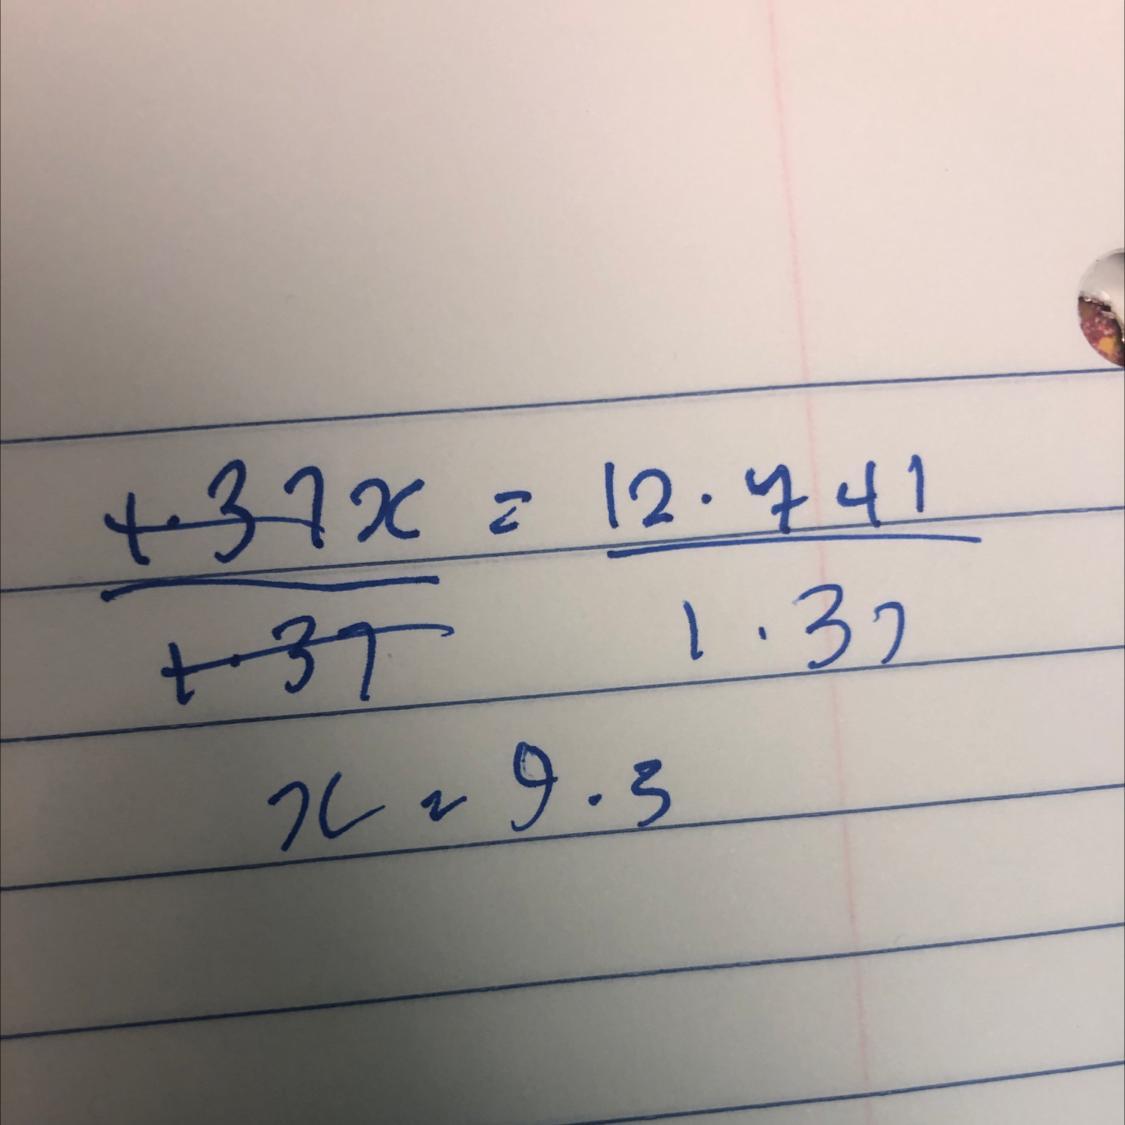 1.37x = 12.741
1.37 1.37
x = 9.3